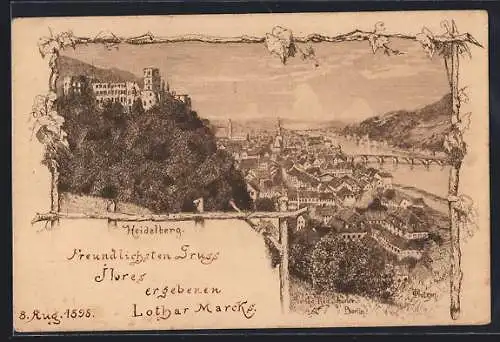 Heidelberg.
Freundlichsten Gruss
Ihres
ergebenen
Lothar Marcks.
8. Aug. 1898.
Berlin.